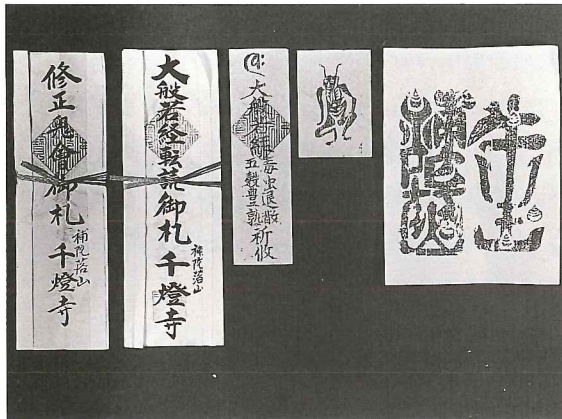 修正鬼會御札
補陀落山
千燈寺
大般若経転読御札
補陀落山
千燈寺
大般若経
毒虫退散
五穀豊熟
祈攸
牛王